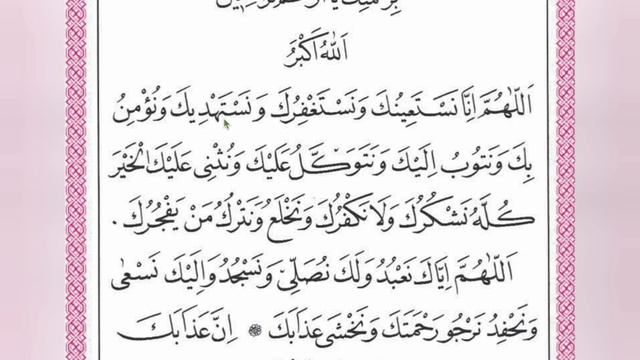 اَللّٰهُ اَكْبَرُ
اَللّٰهُمَّ اِنَّا نَسْتَعِينُكَ وَنَسْتَغْفِرُكَ وَنَسْتَهْدِيكَ وَنُؤْمِنُ
بِكَ وَنَتُوبُ اِلَيْكَ وَنَتَوَكَّلُ عَلَيْكَ وَنُثْنِى عَلَيْكَ الْخَيْرَ
كُلَّهُ نَشْكُرُكَ وَلَا نَكْفُرُكَ وَنَخْلَعُ وَنَتْرُكُ مَنْ يَفْجُرُكَ .
اَللّٰهُمَّ اِيَّاكَ نَعْبُدُ وَلَكَ نُصَلِّى وَنَسْجُدُ وَاِلَيْكَ نَسْعٰى
وَنَحْفِدُ نَرْجُو رَحْمَتَكَ وَنَخْشٰى عَذَابَكَ ❁ اِنَّ عَذَابَكَ